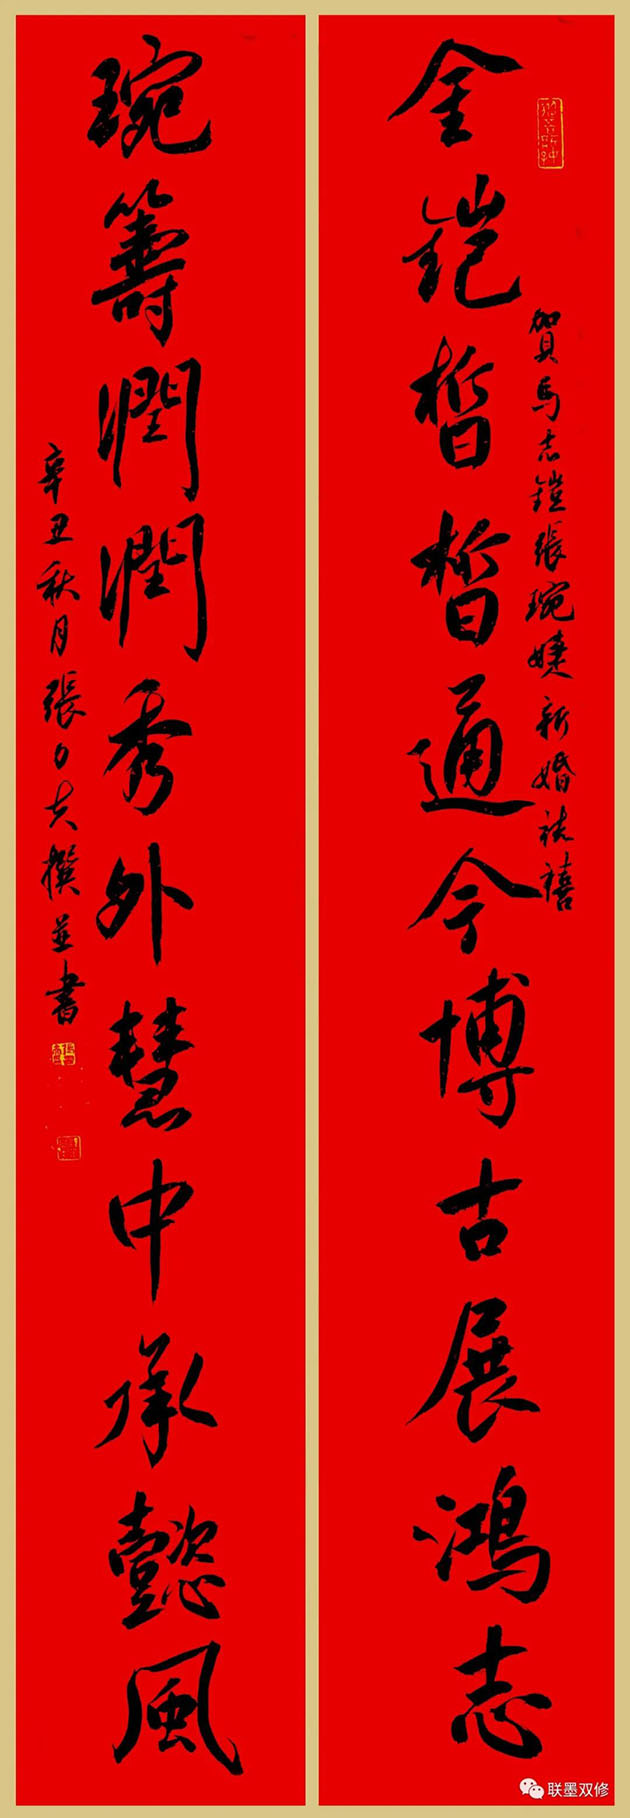 賀馬志鎧張琬婕新婚誌禧
金鎧晳晳通今博古展鴻志
琬籌潤潤秀外慧中承懿風
辛丑秋月張
撰並書
联墨双修